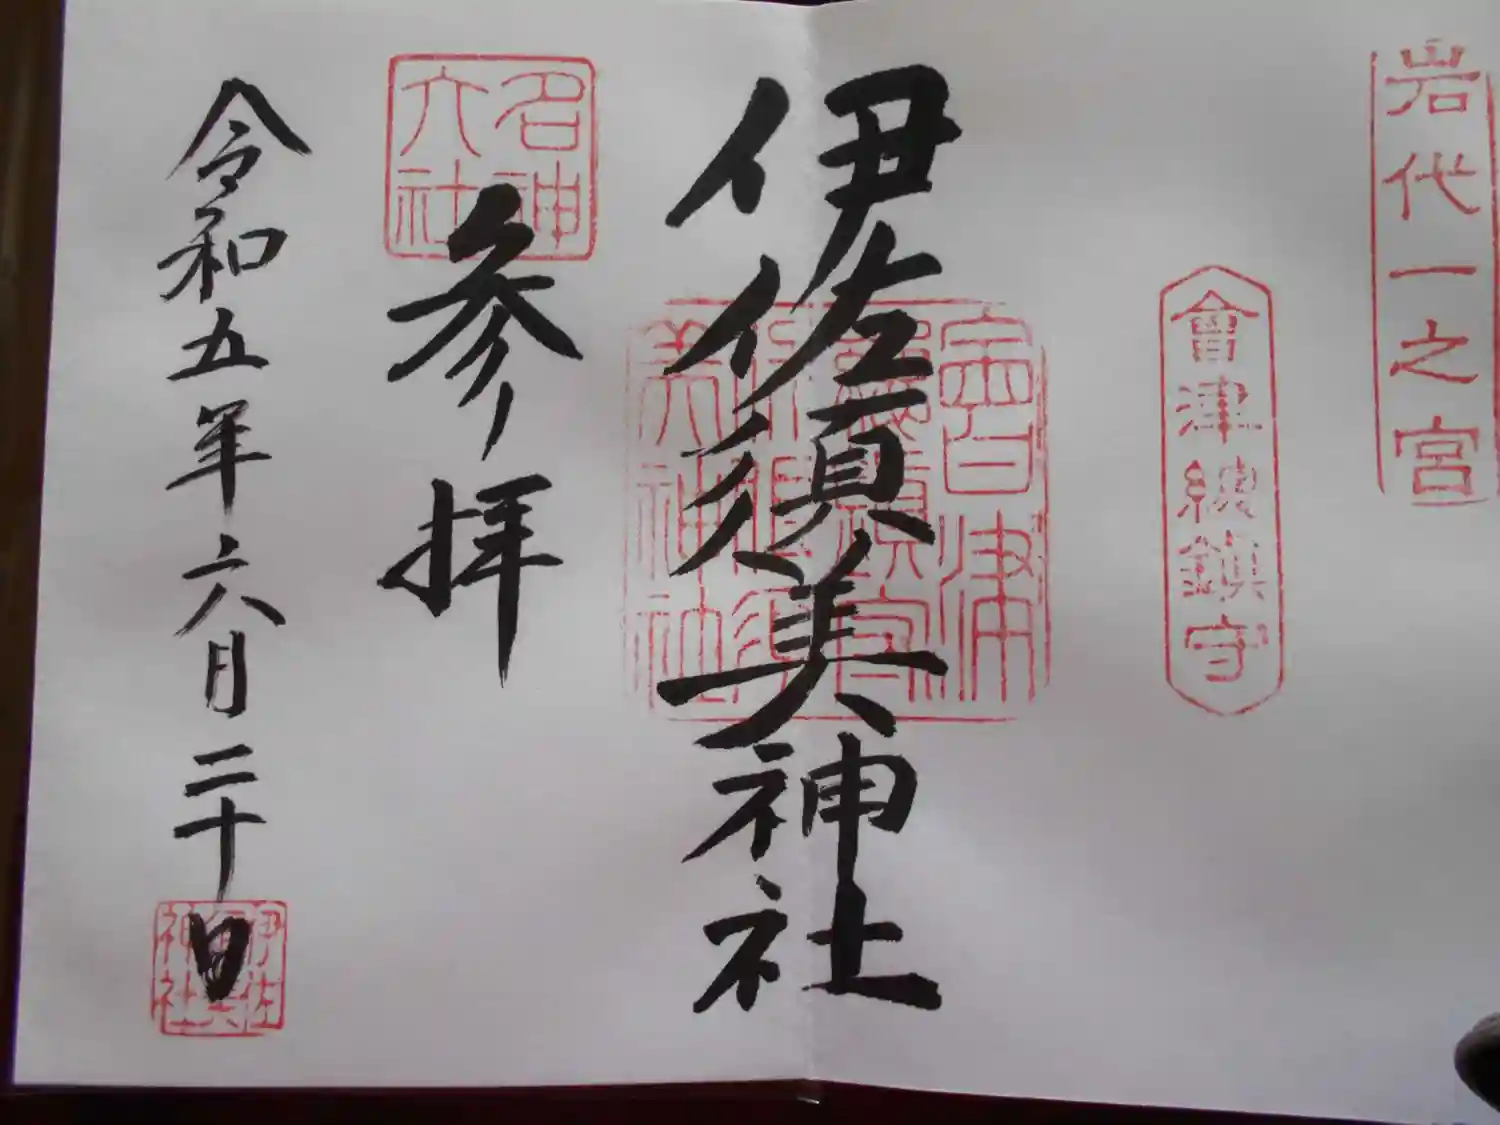 岩代一之宮
會津總鎮守
伊佐須美神社
名神
大社
参拝
令和五年六月二十日
伊佐
須美
神社